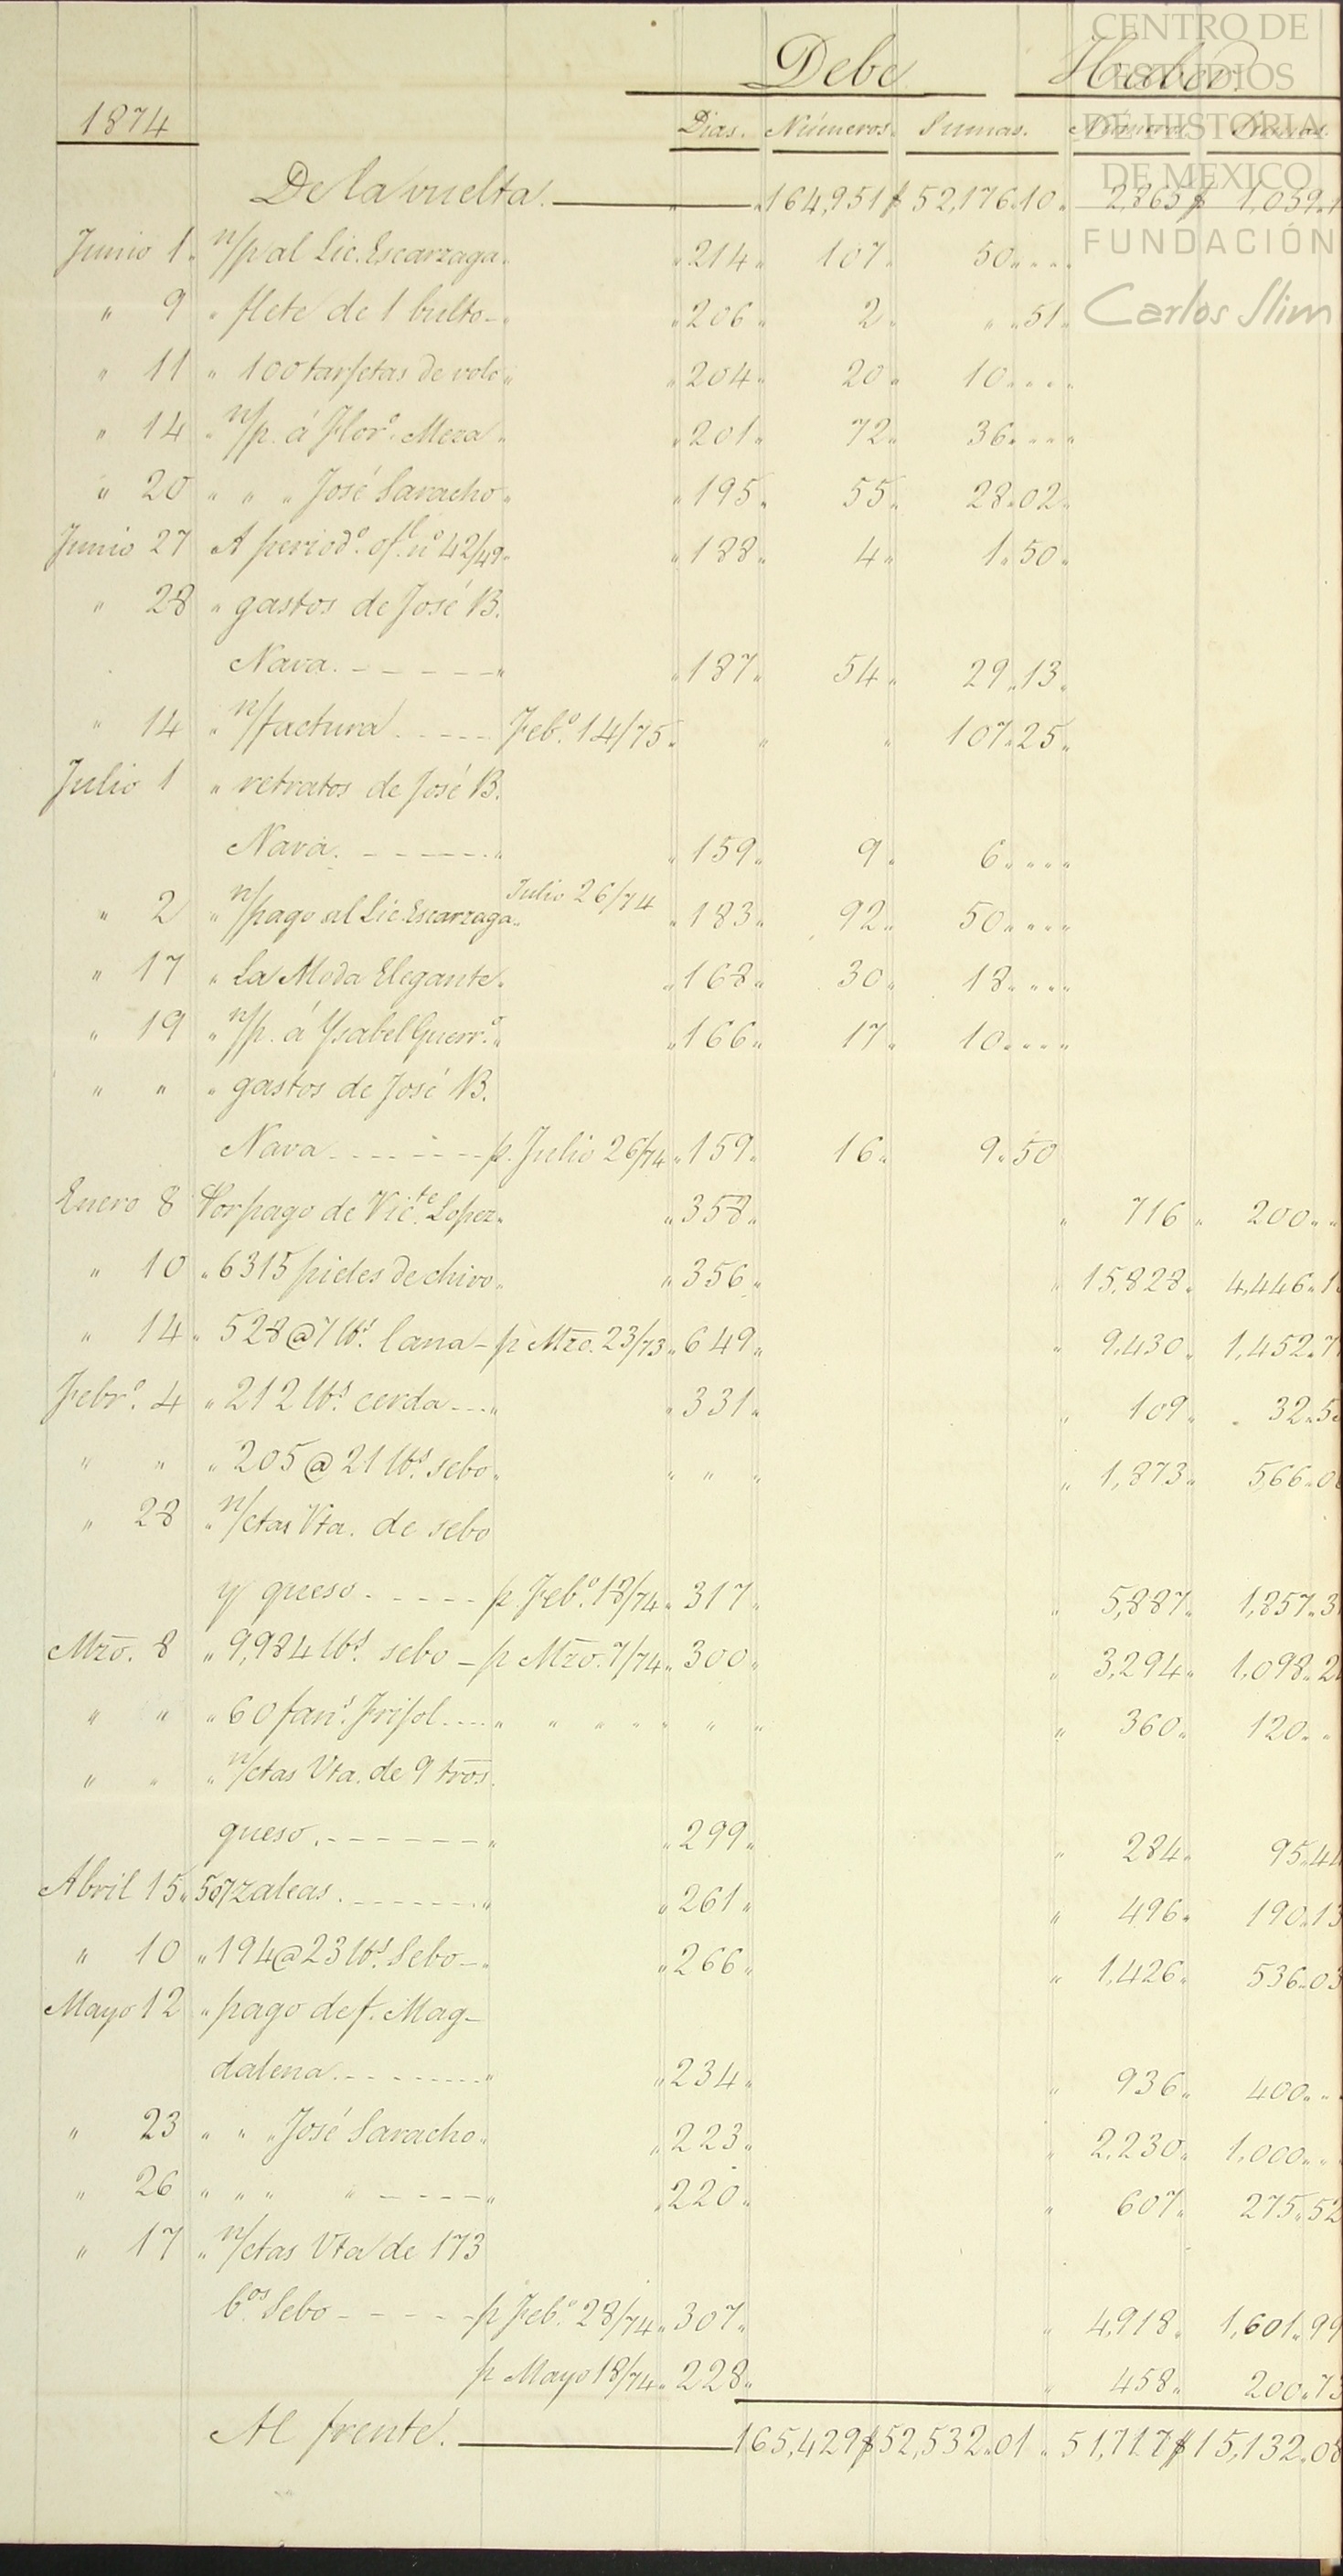 CENTRO DE
ESTUDIOS
DE HISTORIA
DE MEXICO
FUNDACIÓN
Carlos Slim
Debe Haber.
1874 Dias. Números. Sumas. Números. Sumas.
De la vuelta. " "164,951 $ 52,176.10" 2,863 $ 1,039.1
Junio 1" n/p al Lic. Escarzaga" "214" 107" 50" " " "
" 9 " flete de 1 bulto-" "206" 2" " "51"
" 11 " 100 tarjetas de vole" "204" 20" 10" " " "
" 14 " n/p. á Florº. Meza" "201" 72" 36" " " "
" 20 " " " José Saracho" "195" 55" 28"02"
Junio 27 A periodº. ofl. nº 42/49" "188" 4" 1"50"
" 28 " gastos de José B.
Nava. - - - - - " "187" 54" 29"13"
" 14 " n/factura - - - - Febº. 14/75" " " 107"25"
Julio 1 " retratos de José B.
Nava. - - - - - " "159" 9" 6" " " "
Julio 26/74
" 2 " n/pago al Lic. Escarzaga" "183" 92" 50" " " "
" 17 " La Moda Elegante" "168" 30" 18" " " "
" 19 " n/p. á Ysabel Guerrº" "166" 17" 10" " " "
" " " gastos de José B.
Nava - - - - - - p. Julio 26/74 "159" 16" 9"50
Enero 8 Por pago de Victe. Lopez" "358" " 716 " 200" "
" 10 " 6315 pieles de chivo" "356" " 15,828" 4,446"1
" 14 " 528 @ 7 lbs. lana - p Mzo. 23/73 "649" " 9,430" 1,452"7
Febrº. 4 " 212 lbs. cerda - - - " "331" " 109" " 32"5
" " " 205 @ 21 lbs. sebo" " " " " 1,873" 566"0
" 28 " n/ctas Vta. de sebo
y queso. - - - - - p. Febº. 18/74 "317" " 5,887" 1,857"3
Mzo. 8 " 9,984 lbs. sebo - p Mzo. 7/74 "300" " 3,294" 1,098"2
" " " 60 fans. Frijol - - - " " " " " " " " 360" 120" "
" " " n/ctas Vta. de 9 tros.
queso. - - - - - - " "299" " 284" 95"44
Abril 15 " 507 zaleas. - - - - - - " "261" " 496" 190"13
" 10 " 194 @ 23 lbs. Sebo - " "266" " 1,426" 536"03
Mayo 12 " pago de f. Mag-
dalena. - - - - - - " "234" " 936" 400" "
" 23 " " " José Saracho" "223" " 2,230" 1,000" "
" 26 " " " " - - - - " "220" " 607" 275"52
" 17 " n/ctas Vta de 173
bos. Sebo - - - - - p Febº. 28/74 "307" " 4,918" 1,601"99
p Mayo 18/74 "228" " 458" 200"73
Al frente. 165,429 $ 52,532"01 " 51,717 $ 15,132"08